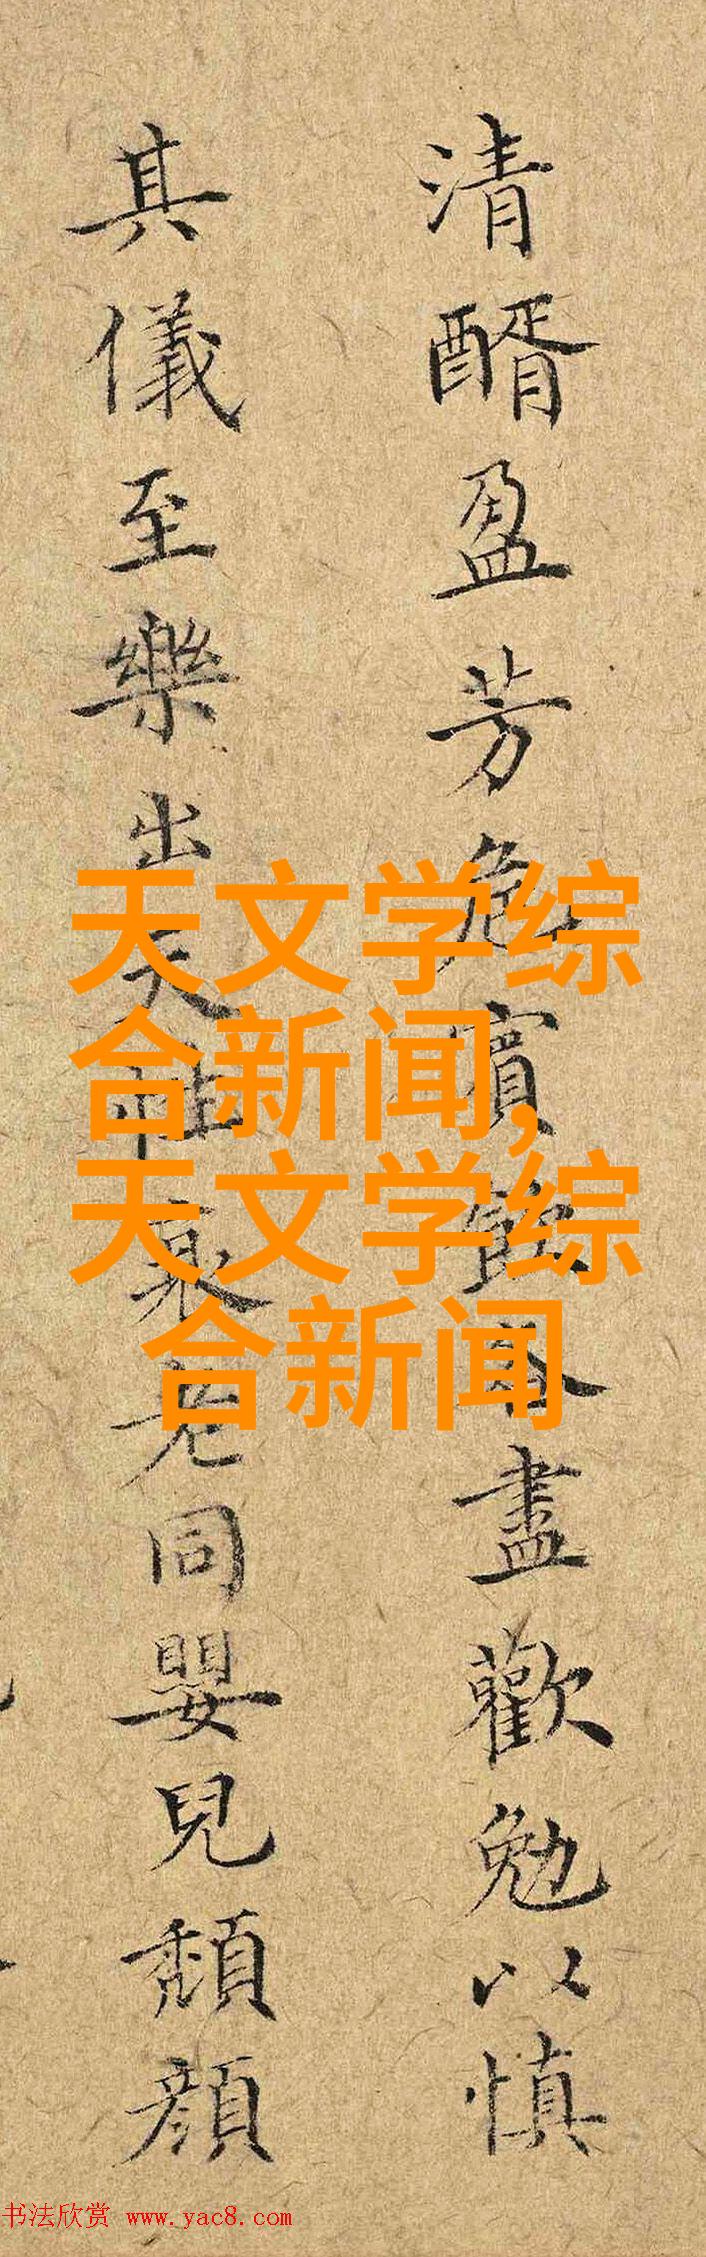 清醑盈芳賓盡歡勉以慎
其儀至樂出天性老同嬰兒頹顏
天文学综
合新闻,
天文学综
合新闻
书法欣赏 www.yac8.com